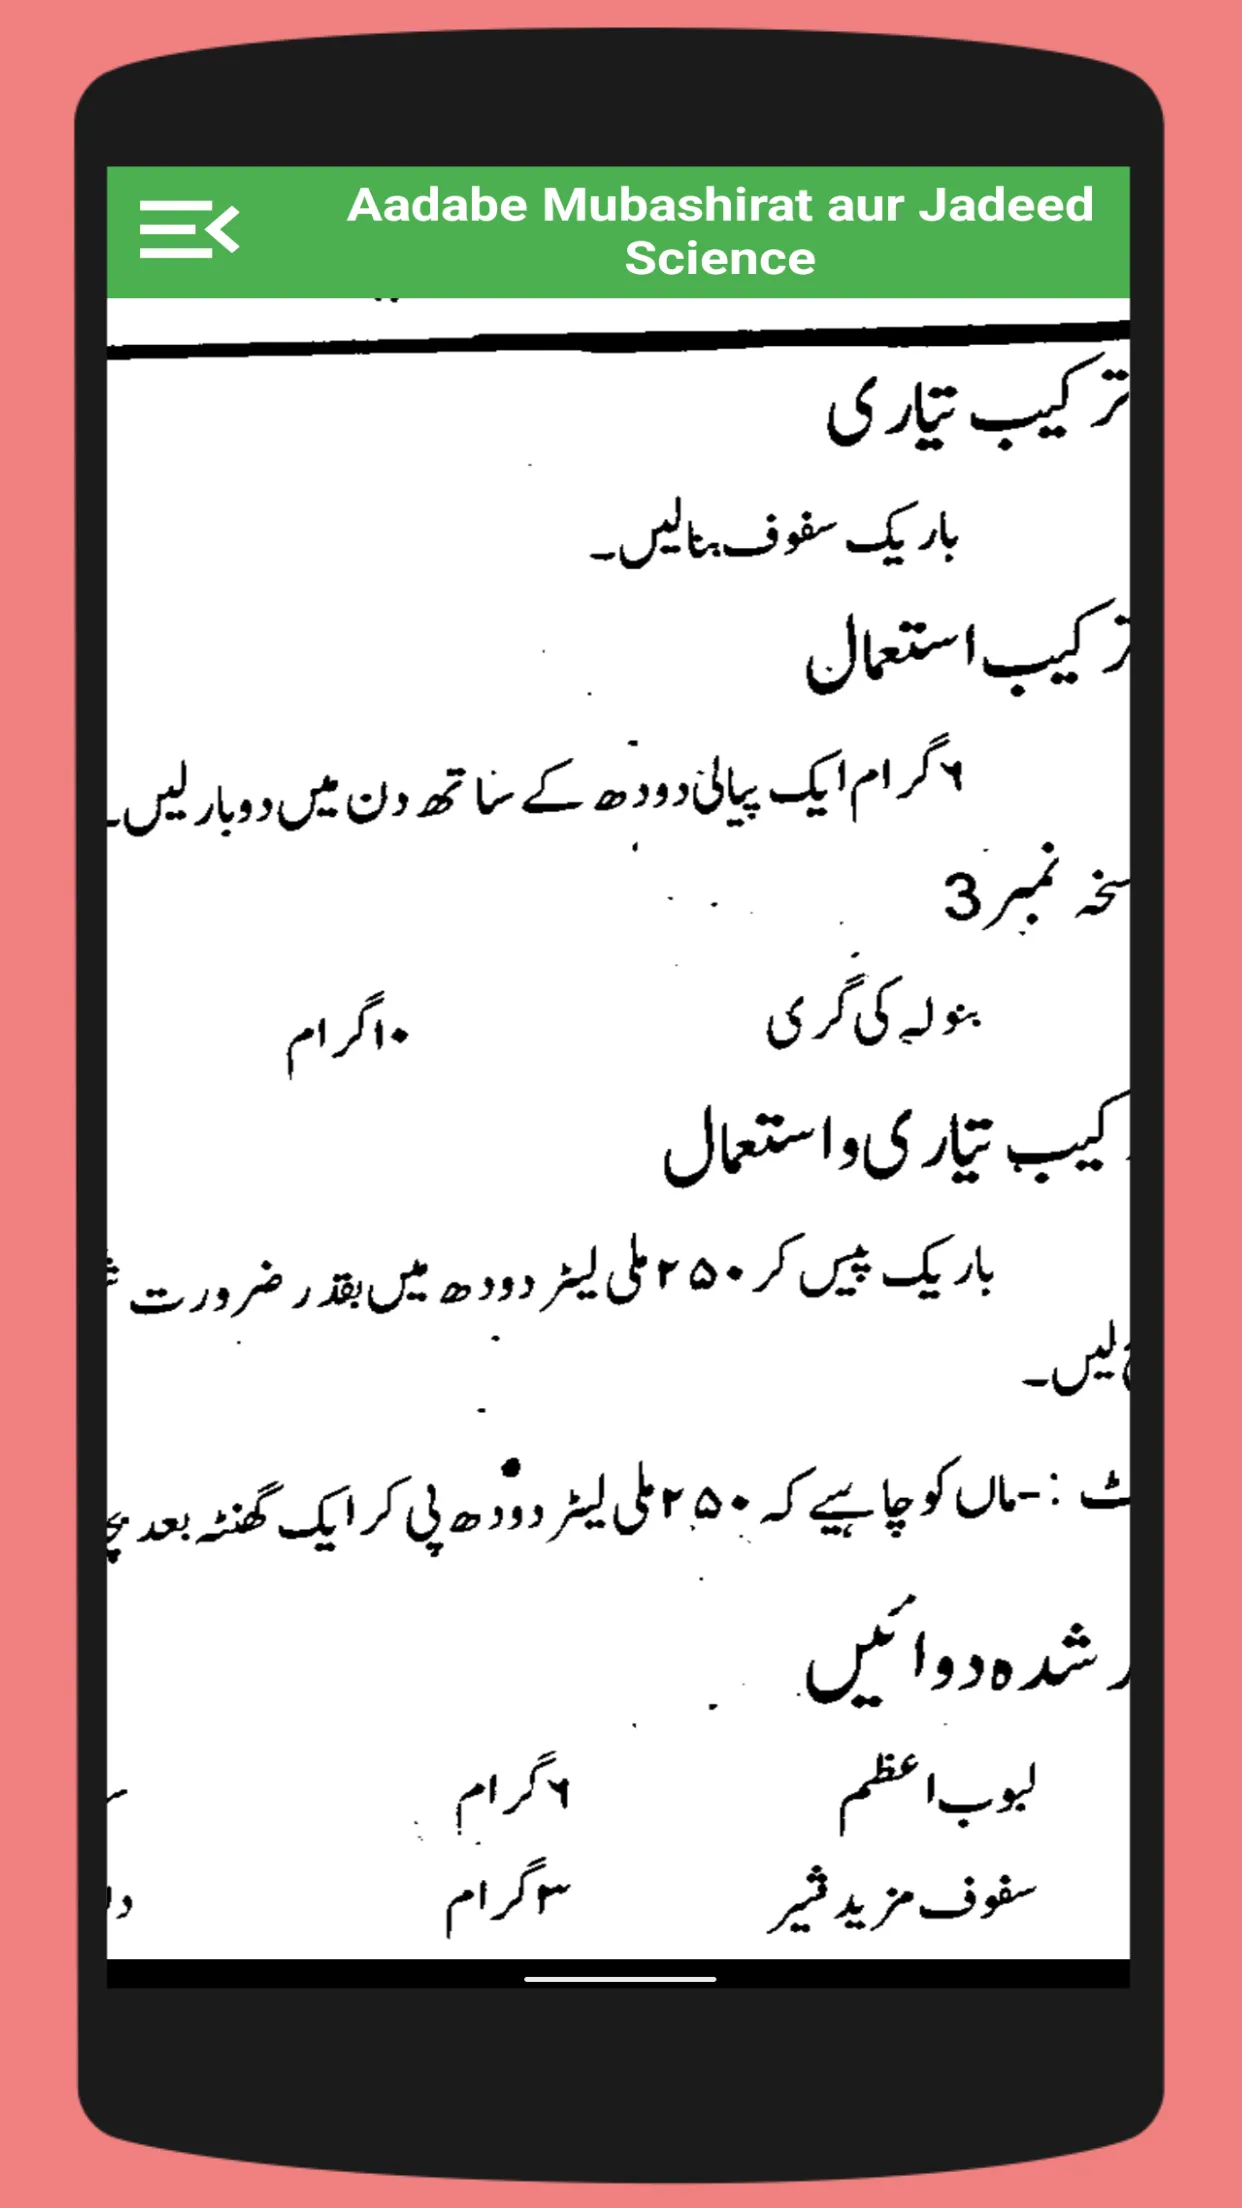 Aadabe Mubashirat aur Jadeed
Science
ترکیب تیاری
باریک سفوف بنالیں۔
ترکیب استعمال
۶ گرام ایک پیالی دودھ کے ساتھ دن میں دوبار لیں۔
نمبر 3
بنولہ کی گری ۱۰ گرام
تیاری و استعمال
باریک پیس کر ۲۵۰ ملی لیٹر دودھ میں بقدر ضرورت
لیں۔
:- ماں کو چاہیے کہ ۲۵۰ ملی لیٹر دودھ پی کر ایک گھنٹہ بعد
شدہ دوائیں
لبوب اعظم ۶ گرام
سفوف مزید شیر ۳ گرام